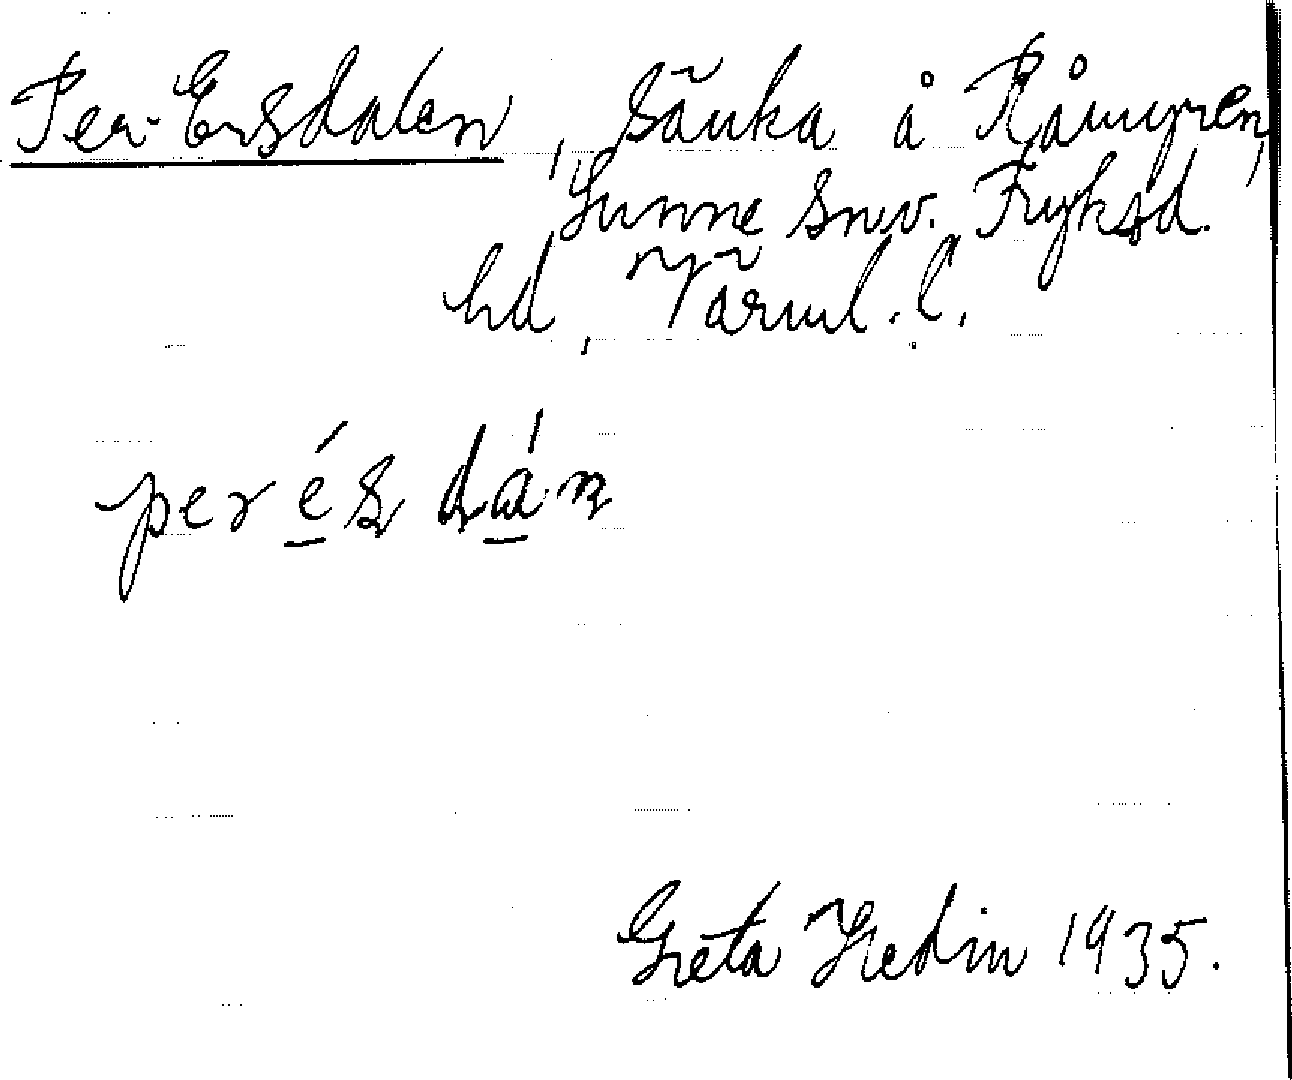 Per-Ersdalen, Sänka å Råmyren,
Sunne snv. Fryksd.
hd, Värml. l.
per és dán
Greta Hedin 1935.